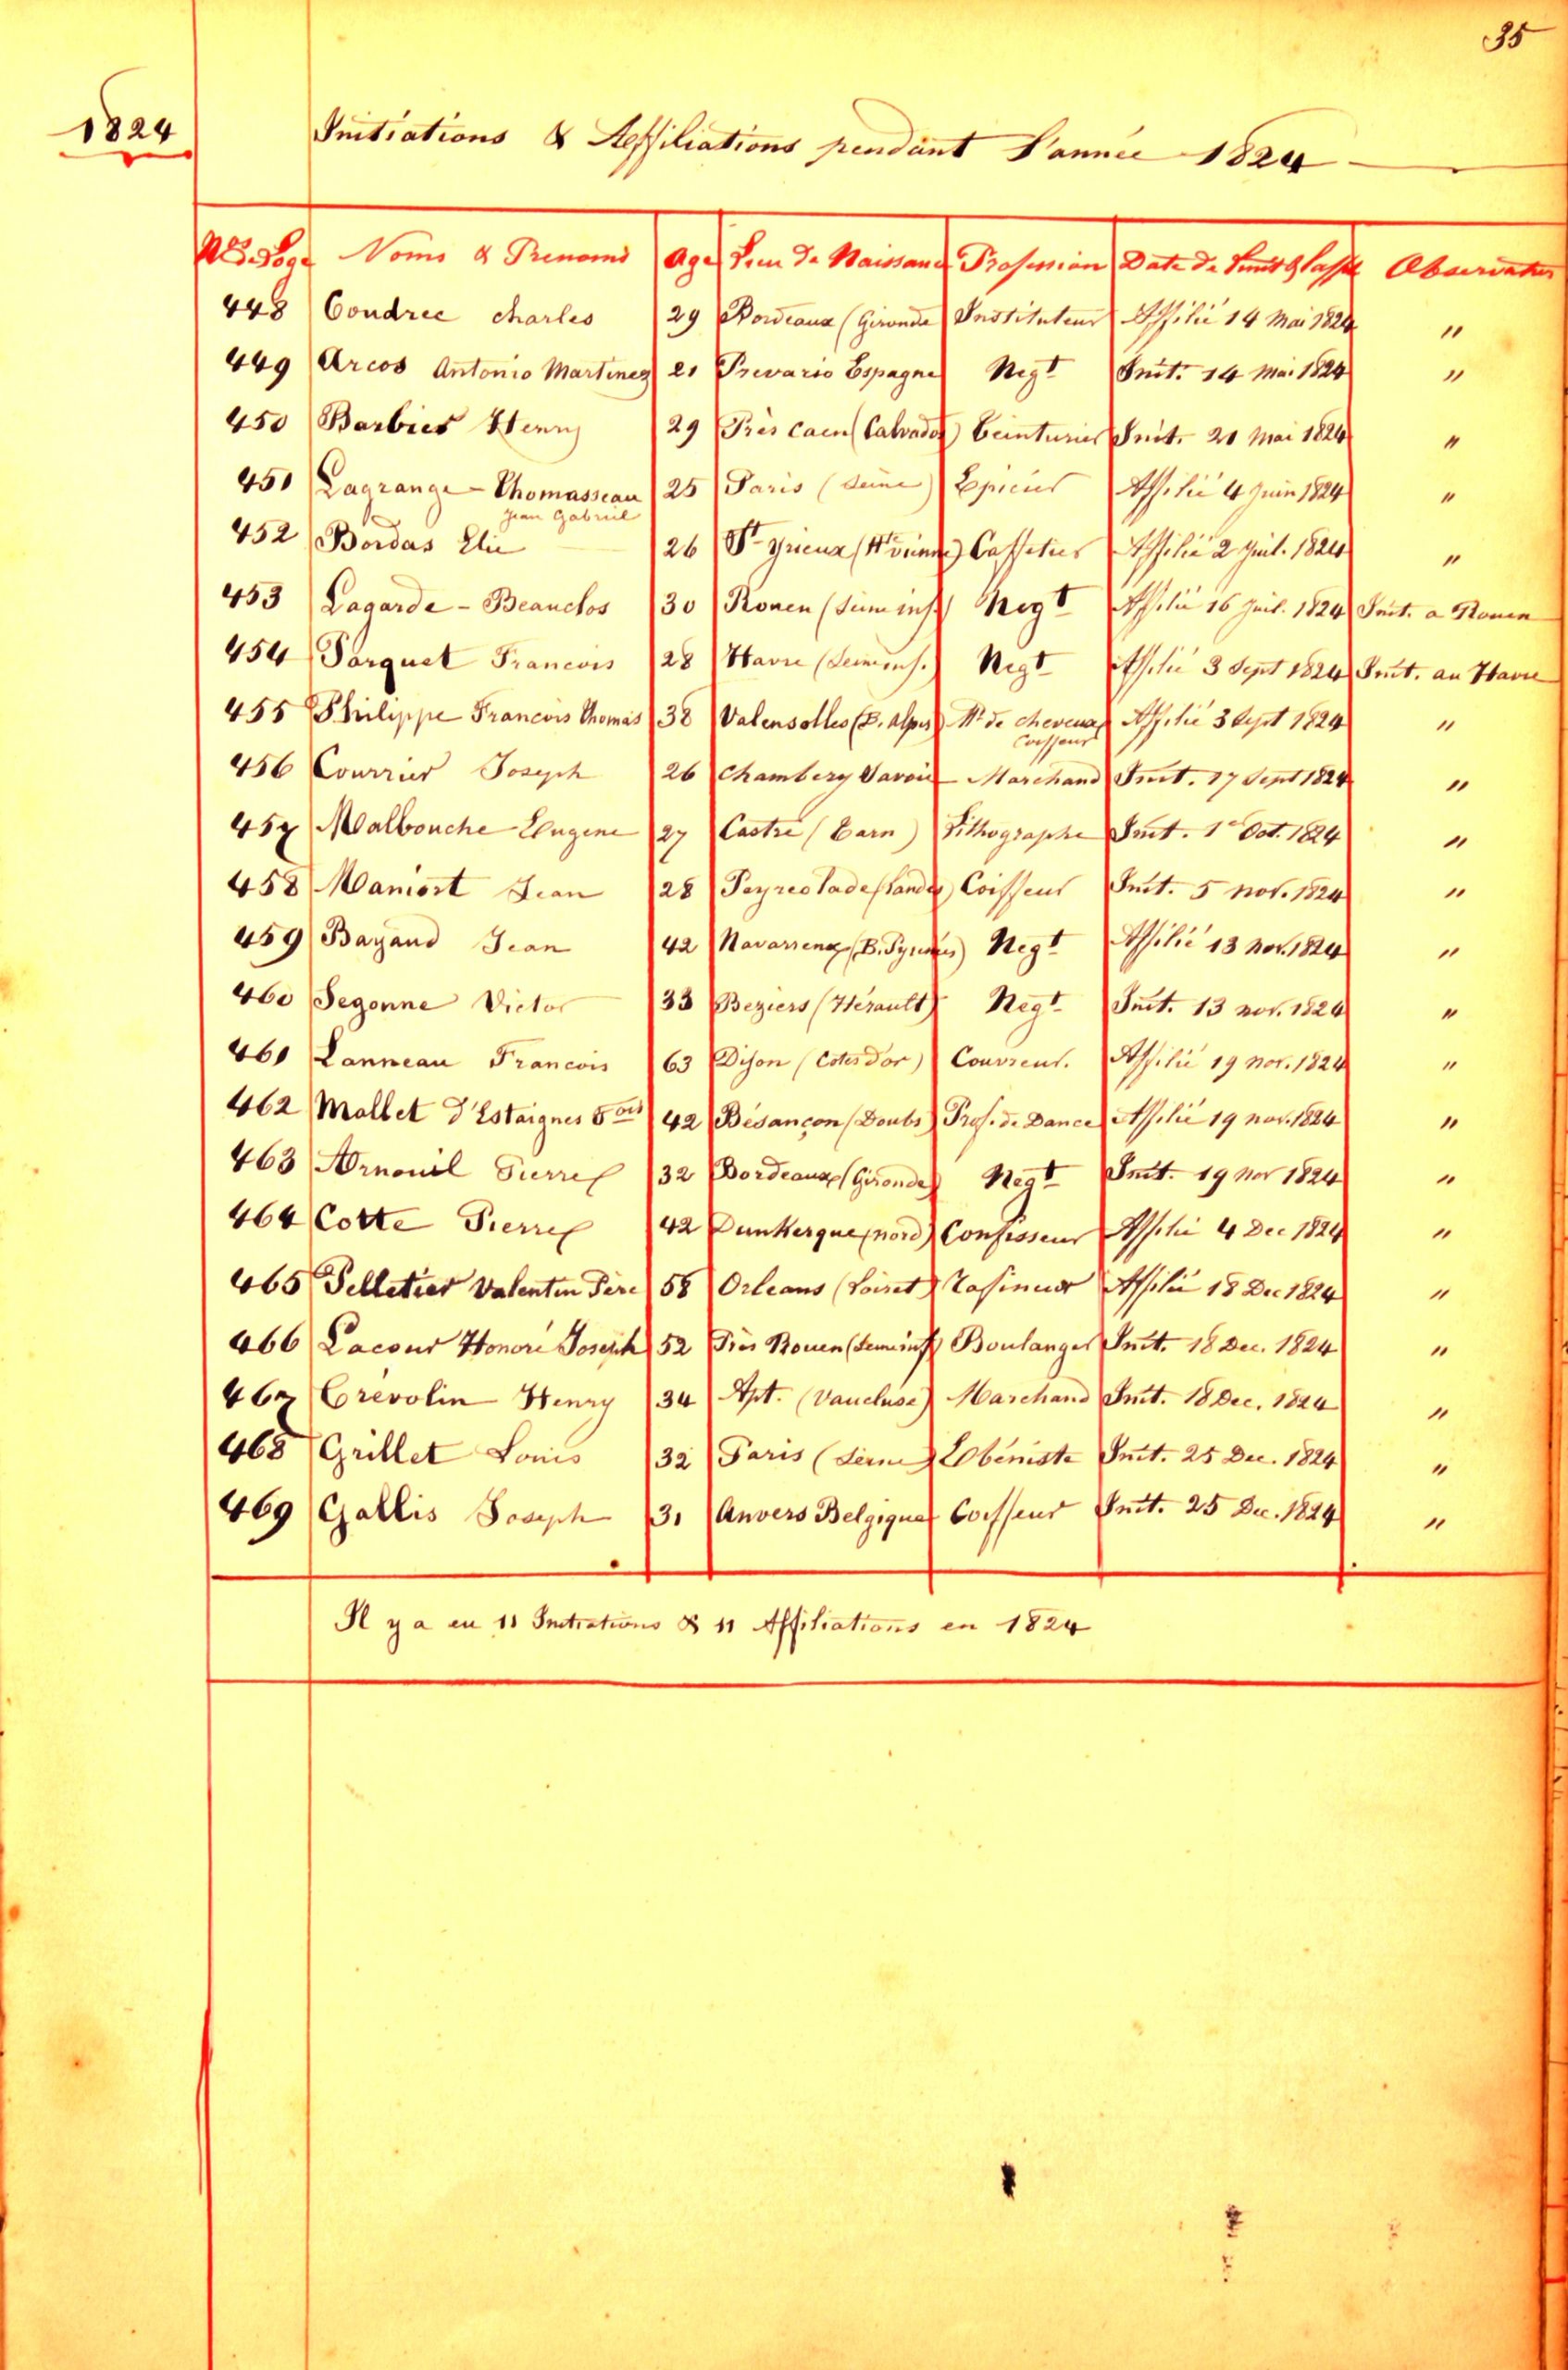 35
1824
Initiations & Affiliations pendant l'année 1824
Noms & Prenoms Age Lieu de Naissance Profession Date de
448 Condrée Charles 29 Bordeaux (Gironde Instituteur Affilié 14 Mai 1824 "
449 Arcos Antonio Martinez 21 Prevario Espagne Negt Init. 14 Mai 1824 "
450 Barbier Henry 29 Près Caen (Calvados) Teinturier Init. 21 Mai 1824 "
451 Lagrange - Thomasseau 25 Paris (Seine) Epicier Affilié 4 Juin 1824 "
Jean Gabriel
452 Bordas Elie 26 St Yrieux (Hte Vienne) Caffetier Affilié 2 Juil. 1824 "
453 Lagarde - Beauclos 30 Rouen (Seine inf.) Negt Affilié 16 Juil. 1824 Init. a Rouen
454 Parquet Francois 28 Havre (Seine inf.) Negt Affilié 3 Sept 1824 Init. au Havre
455 Philippe Francois Thomas 38 Valensolles (B. Alpes) Md de cheveux Affilié 3 Sept 1824 "
Coiffeur
456 Courrier Joseph 26 Chambery Savoie Marchand Init. 17 Sept 1824 "
457 Malbouche Eugene 27 Castre (Tarn) Lithographe Init. 1er Oct. 1824 "
458 Maniort Jean 28 Peyrestade (Landes) Coiffeur Init. 5 nov. 1824 "
459 Bayaud Jean 42 Navarrenx (B. Pyrenées) Negt Affilié 13 nov. 1824 "
460 Segonne Victor 33 Beziers (Hérault) Negt Init. 13 nov. 1824 "
461 Lanneau Francois 63 Dijon (Cotes d'or) Couvreur. Affilié 19 nov. 1824 "
462 Mallet d'Estaignes Fois 42 Besançon (Doubs) Prof. de Dance Affilié 19 nov. 1824 "
463 Arnouil Pierre 32 Bordeaux (Gironde) Negt Init. 19 nov 1824 "
464 Cotte Pierre 42 Dunkerque (nord) Confisseur Affilié 4 Dec 1824 "
465 Pelletier Valentin Père 58 Orleans (Loiret) Rafineur Affilié 18 Dec 1824 "
466 Lacour Honoré Joseph 52 Près Rouen (Seine inf) Boulanger Init. 18 Dec. 1824 "
467 Crevolin Henry 34 Apt. (Vaucluse) Marchand Init. 18 Dec. 1824 "
468 Grillet Louis 32 Paris (Seine) Ebeniste Init. 25 Dec. 1824 "
469 Gallis Joseph 31 Anvers Belgique Coiffeur Init. 25 Dec. 1824 "
Il y a eu 11 Initiations & 11 Affiliations en 1824